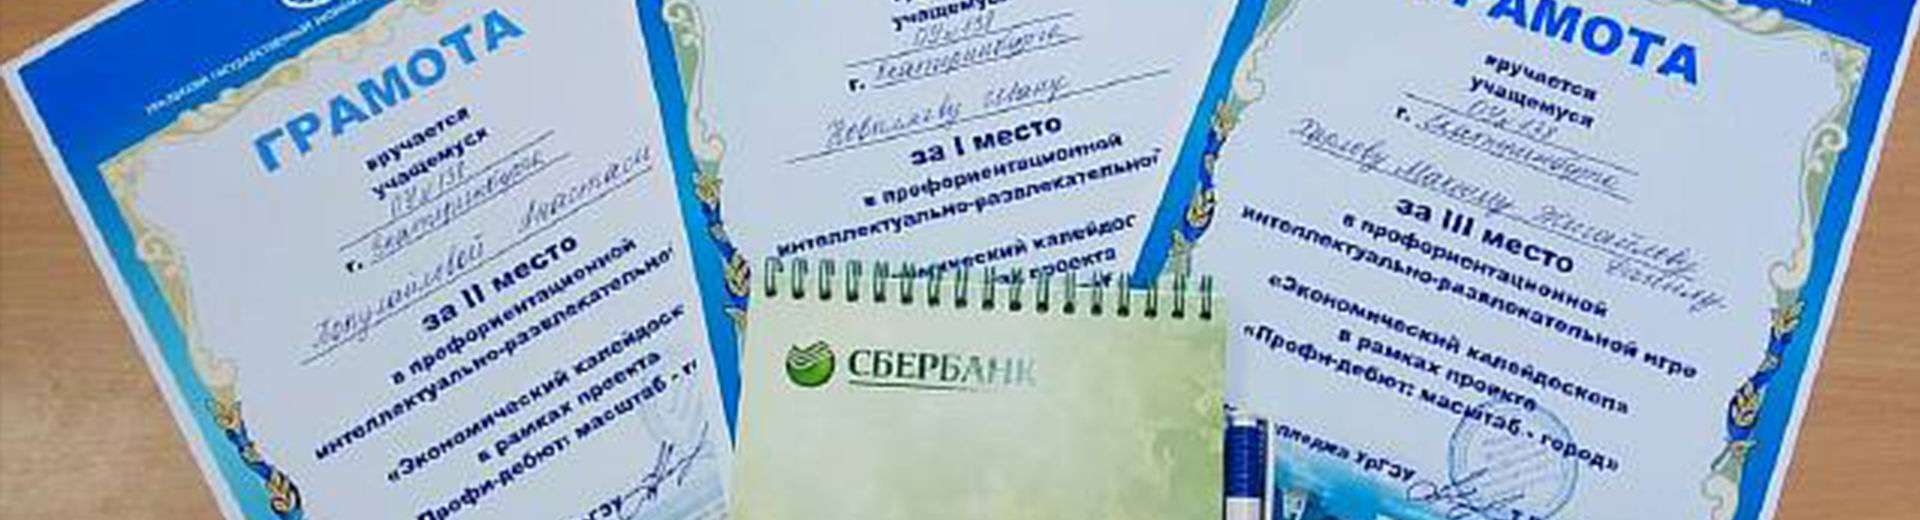 ГРАМОТА
вручается
учащемуся
ОУ № 138
г. Екатеринбурга
Анастаси
за II место
в профориентационной
интеллектуально-развлекательно
«Экономический калейдоск
в рамках проекта
Профи-дебют: масштаб - г
учащемуся
ОУ № 138
г. Екатеринбурга
Ивану
за I место
в профориентационной
интеллектуально-развлекательной
мический калейдос
проекта
СБЕРБАНК
РАМОТА
вручается
учащемуся
ОУ № 138
г. Екатеринбурга
Фролову Максиму
за III место
в профориентационной
интеллектуально-развлекательной игре
«Экономический калейдоскоп»
в рамках проекта
«Профи-дебют: масштаб - город»
лледжа УрГЭУ